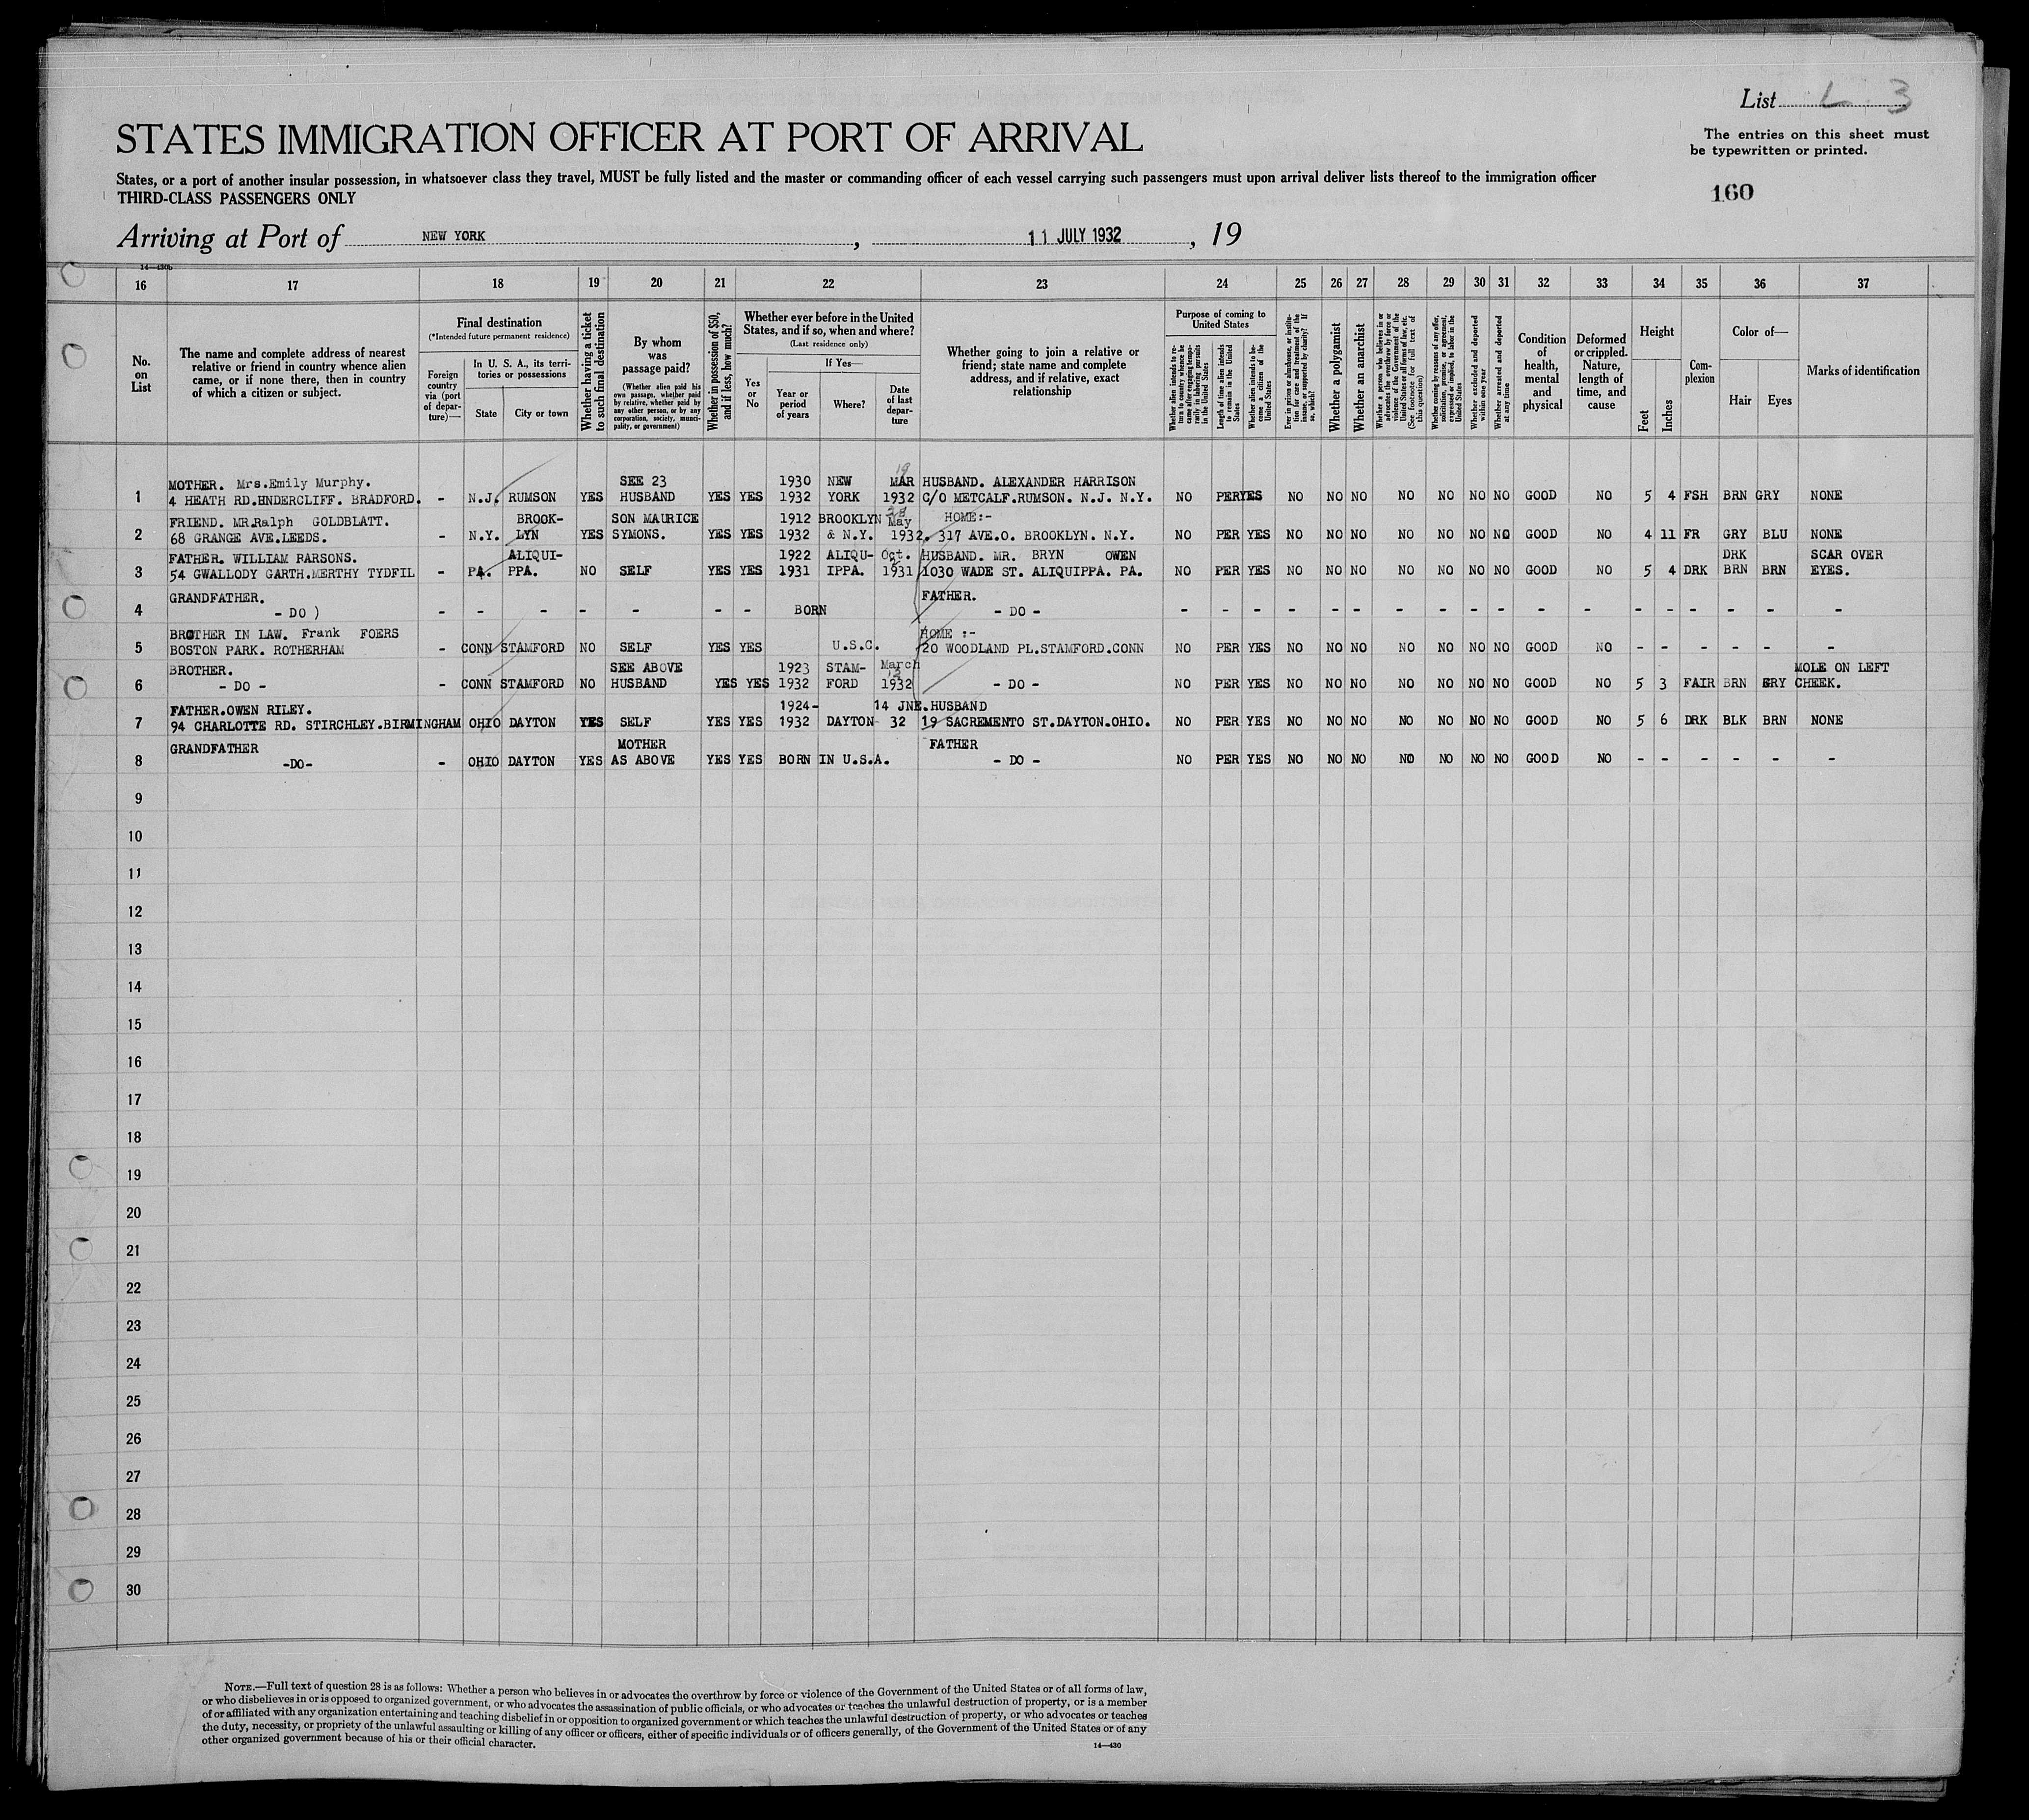 List L 3
STATES IMMIGRATION OFFICER AT PORT OF ARRIVAL
The entries on this sheet must
be typewritten or printed.
States, or a port of another insular possession, in whatsoever class they travel, MUST be fully listed and the master or commanding officer of each vessel carrying such passengers must upon arrival deliver lists thereof to the immigration officer
THIRD-CLASS PASSENGERS ONLY
160
Arriving at Port of NEW YORK, 11 JULY 1932, 19
14—430b
16 17 18 19 20 21 22 23 24 25 26 27 28 29 30 31 32 33 34 35 36 37
No. on List
The name and complete address of nearest relative or friend in country whence alien came, or if none there, then in country of which a citizen or subject.
Final destination
(*Intended future permanent residence)
Foreign country via (port of departure)—
In U. S. A., its territories or possessions
State
City or town
Whether having a ticket to such final destination
By whom was passage paid?
(Whether alien paid his own passage, whether paid by relative, whether paid by any other person, or by any corporation, society, municipality, or government)
Whether in possession of $50, and if less, how much?
Whether ever before in the United States, and if so, when and where?
(Last residence only)
Yes or No
If Yes—
Year or period of years
Where?
Date of last departure
Whether going to join a relative or friend; state name and complete address, and if relative, exact relationship
Purpose of coming to United States
Whether alien intends to return to country whence he came after engaging temporarily in laboring pursuits in the United States
Length of time alien intends to remain in the United States
Whether alien intends to become a citizen of the United States
Ever in prison or almshouse, or institution for care and treatment of the insane, or supported by charity? If so, which?
Whether a polygamist
Whether an anarchist
Whether a person who believes in or advocates the overthrow by force or violence of the Government of the United States or all forms of law, etc. (See footnote for full text of this question)
Whether coming by reason of any offer, solicitation, promise, or agreement, expressed or implied, to labor in the United States
Whether excluded and deported within one year
Whether arrested and deported at any time
Condition of health, mental and physical
Deformed or crippled. Nature, length of time, and cause
Height
Feet
Inches
Complexion
Color of—
Hair
Eyes
Marks of identification
MOTHER. Mrs.Emily Murphy. SEE 23 1930 NEW 19 MAR HUSBAND. ALEXANDER HARRISON
1 4 HEATH RD.HNDERCLIFF. BRADFORD. - N.J. RUMSON YES HUSBAND YES YES 1932 YORK 1932 C/O METCALF.RUMSON. N.J. N.Y. NO PER YES NO NO NO NO NO NO NO GOOD NO 5 4 FSH BRN GRY NONE
FRIEND. MR.Ralph GOLDBLATT. BROOK- SON MAURICE 1912 BROOKLYN 28 May HOME:-
2 68 GRANGE AVE.LEEDS. - N.Y. LYN YES SYMONS. YES YES 1932 & N.Y. 1932. 317 AVE.O. BROOKLYN. N.Y. NO PER YES NO NO NO NO NO NO NO GOOD NO 4 11 FR GRY BLU NONE
FATHER. WILLIAM PARSONS. ALIQUI- 1922 ALIQU- Oct. HUSBAND. MR. BRYN OWEN DRK SCAR OVER
3 54 GWALLODY GARTH.MERTHY TYDFIL - PA. PPA. NO SELF YES YES 1931 IPPA. 1931 1030 WADE ST. ALIQUIPPA. PA. NO PER YES NO NO NO NO NO NO NO GOOD NO 5 4 DRK BRN BRN EYES.
GRANDFATHER. FATHER.
4 - DO ) - - - - - - - BORN - DO - - - - - - - - - - - - - - - - - - -
BROTHER IN LAW. Frank FOERS HOME :-
5 BOSTON PARK. ROTHERHAM - CONN STAMFORD NO SELF YES YES U.S.C. 20 WOODLAND PL.STAMFORD.CONN NO PER YES NO NO NO NO NO NO NO GOOD NO - - - - - -
BROTHER. SEE ABOVE 1923 STAM- March MOLE ON LEFT
6 - DO - - CONN STAMFORD NO HUSBAND YES YES 1932 FORD 1932 - DO - NO PER YES NO NO NO NO NO NO NO GOOD NO 5 3 FAIR BRN GRY CHEEK.
FATHER.OWEN RILEY. 1924- 14 JNE.HUSBAND
7 94 CHARLOTTE RD. STIRCHLEY.BIRMINGHAM OHIO DAYTON YES SELF YES YES 1932 DAYTON 32 19 SACREMENTO ST.DAYTON.OHIO. NO PER YES NO NO NO NO NO NO NO GOOD NO 5 6 DRK BLK BRN NONE
GRANDFATHER MOTHER FATHER
8 -DO- - OHIO DAYTON YES AS ABOVE YES YES BORN IN U.S.A. - DO - NO PER YES NO NO NO NO NO NO NO GOOD NO - - - - - -
9
10
11
12
13
14
15
16
17
18
19
20
21
22
23
24
25
26
27
28
29
30
NOTE.—Full text of question 28 is as follows: Whether a person who believes in or advocates the overthrow by force or violence of the Government of the United States or of all forms of law,
or who disbelieves in or is opposed to organized government, or who advocates the assassination of public officials, or who advocates or teaches the unlawful destruction of property, or is a member
of or affiliated with any organization entertaining and teaching disbelief in or opposition to organized government or which teaches the unlawful destruction of property, or who advocates or teaches
the duty, necessity, or propriety of the unlawful assaulting or killing of any officer or officers, either of specific individuals or of officers generally, of the Government of the United States or of any
other organized government because of his or their official character.
14—430